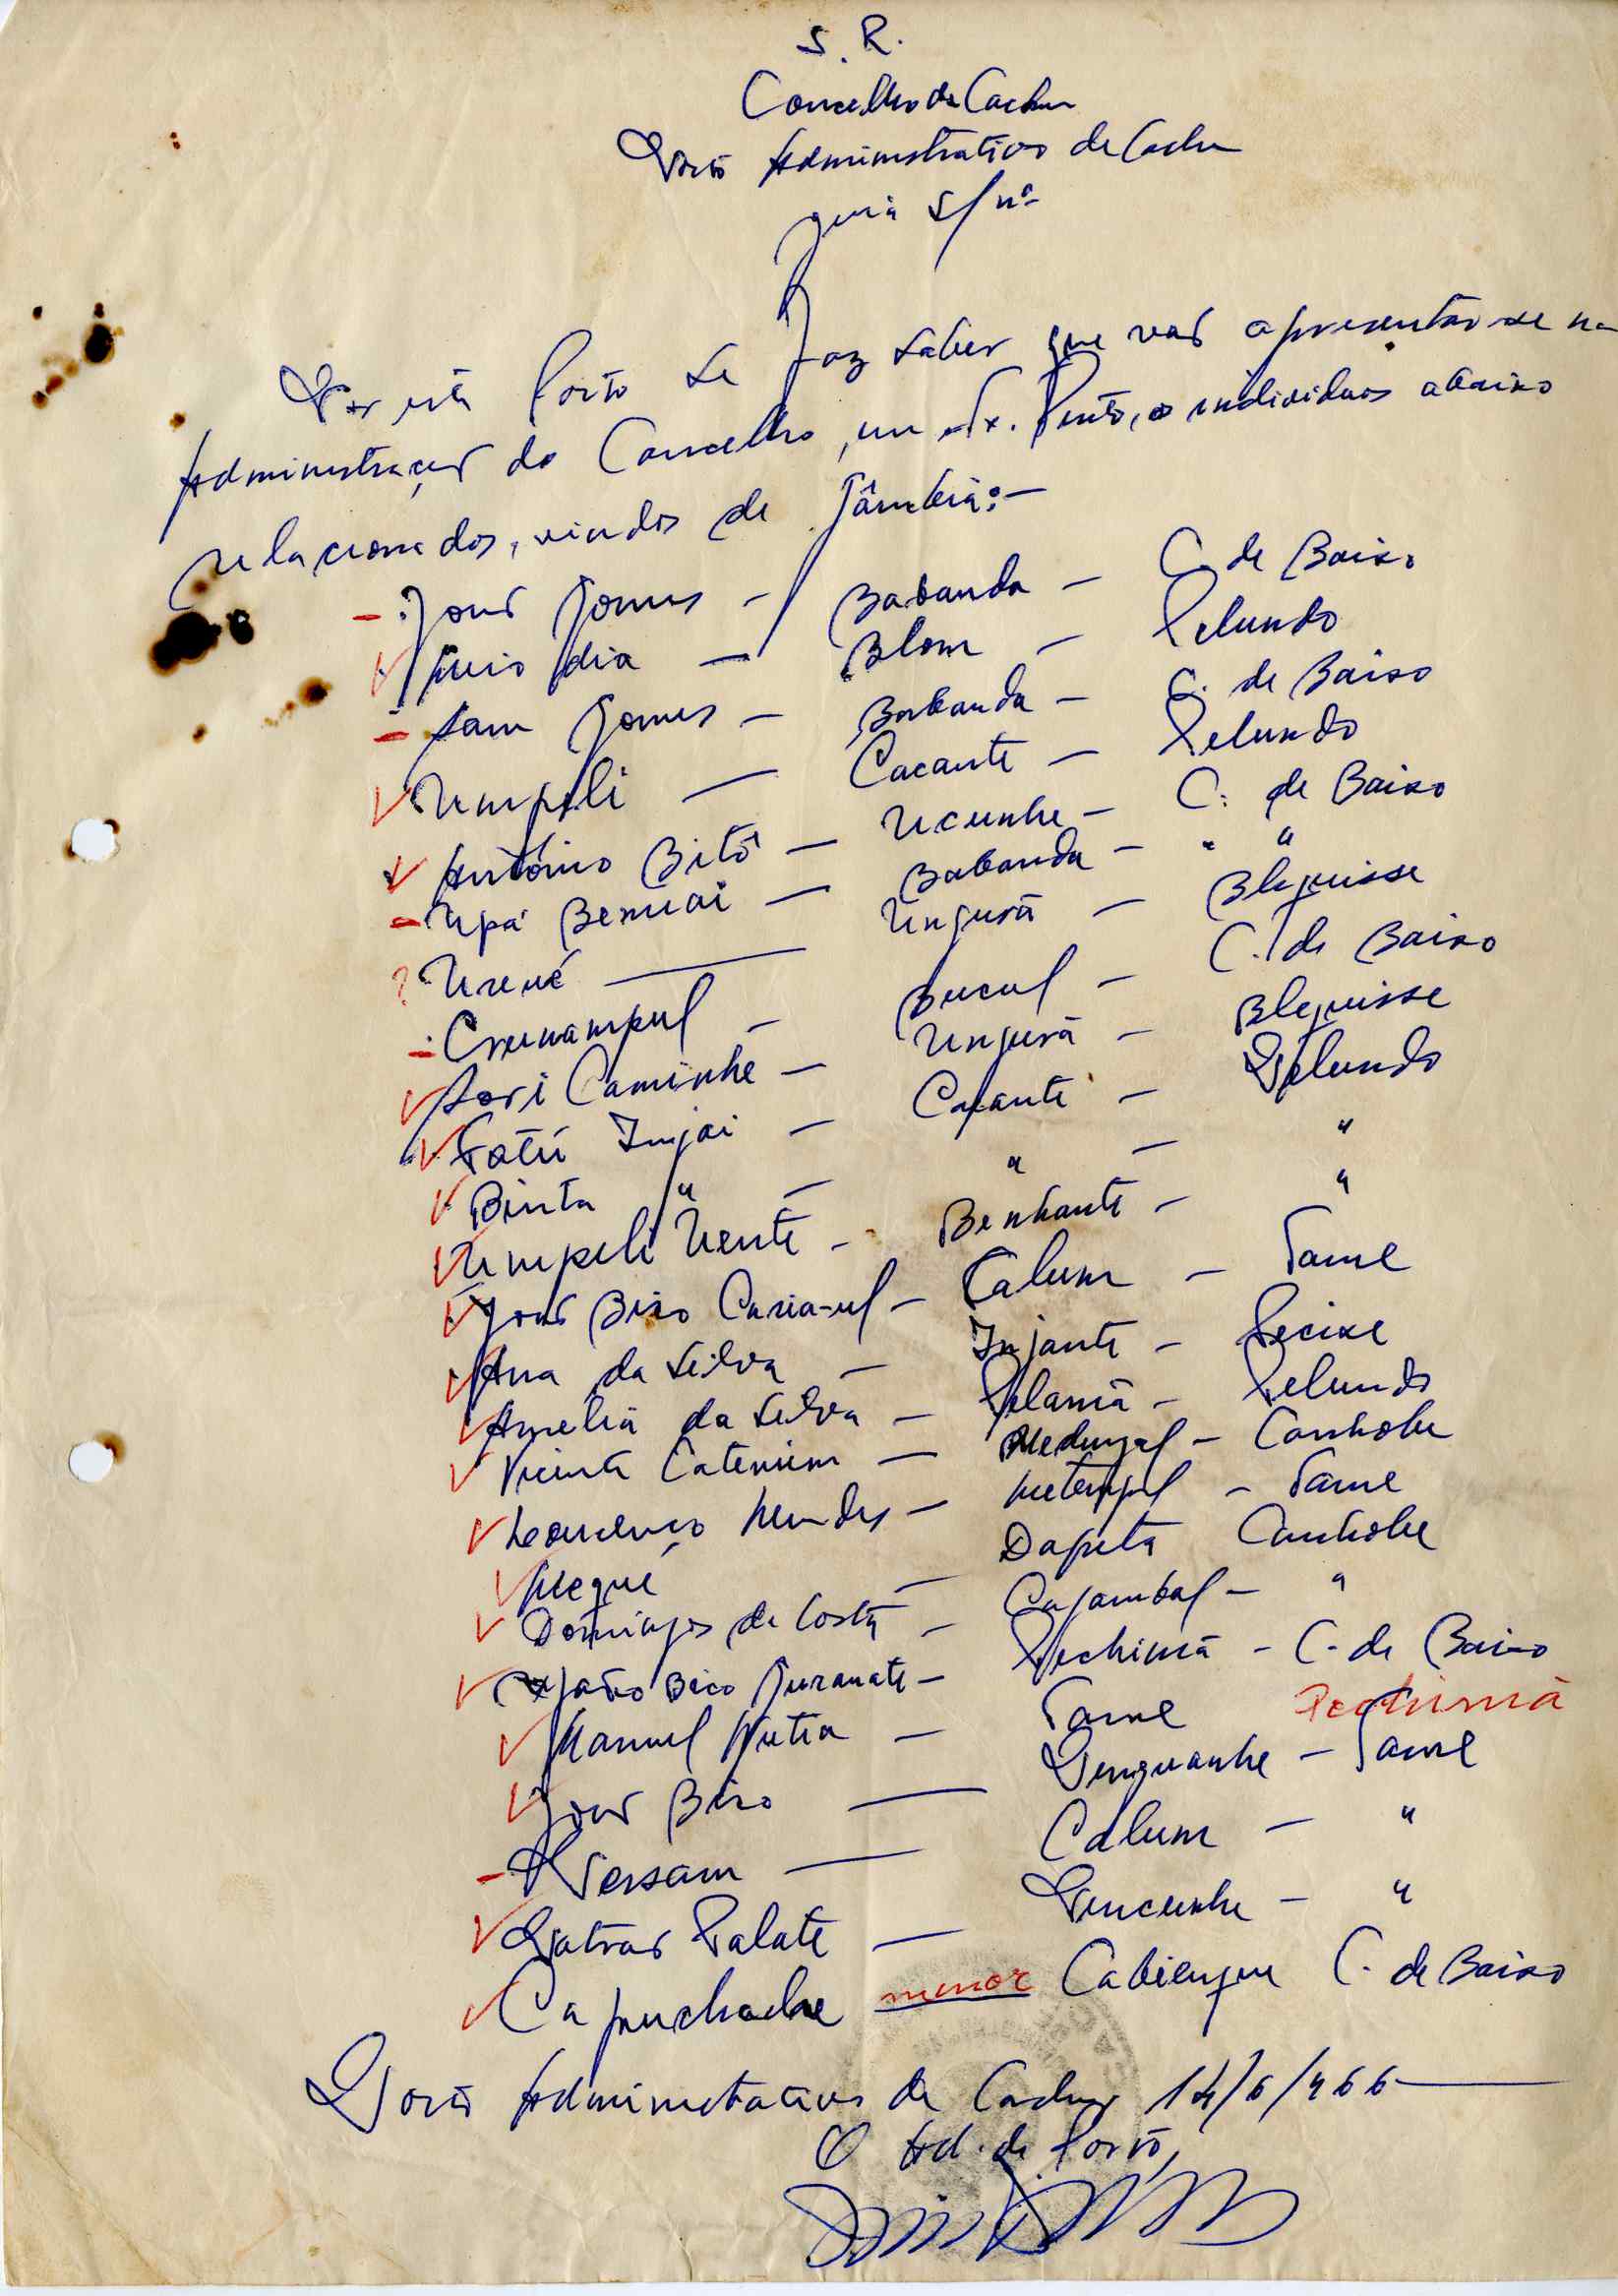 S. R.
Concelho de Cacheu
Posto Administrativo de Cacheu
guia S/nº
Por este Posto se faz saber que vão apresentar-se na
Administração do Concelho, em Tx. Pinto, os individuos abaixo
relacionados, vindos de Gâmbia:-
- João Gomes - Babanda - C. de Baixo
Luis dia - Blom - Pelundo
- Sam Gomes - Babanda - C. de Baixo
Umpeli - Cacante - Pelundo
António Bitô - Ucunhe - C. de Baixo
- Upá Bemuai - Babanda - " "
? Urené - Ungurã - Bleguisse
- Crumampul - Bucul - C. de Baixo
Sori Caminhe - Ungurã - Bleguisse
Fatú Injai - Cacante - Pelundo
Binta " - " - "
Umpeli Uente - Benhante - "
João Biso Caria-ul - Calum - Tame
Ana da Silva - Injante - Jecixe
Amelia da Silva - Pelamã - Pelundo
Vicente Catenum - Canhobe
Lourenço Mendes - Tame
Megué - Dapeta Canhobe
Domingos da Costa - Cajambal - "
João Bico - Pechimã - C. de Baixo
Manuel - Tame Pechimã
João Biso - Tame
- Persam - Calum - "
Palate - Pincunhe - "
Capuchade menor Cabiengue C. de Baixo
Posto Administrativo de Cacheu 14/6/966
O Ad. de Posto,